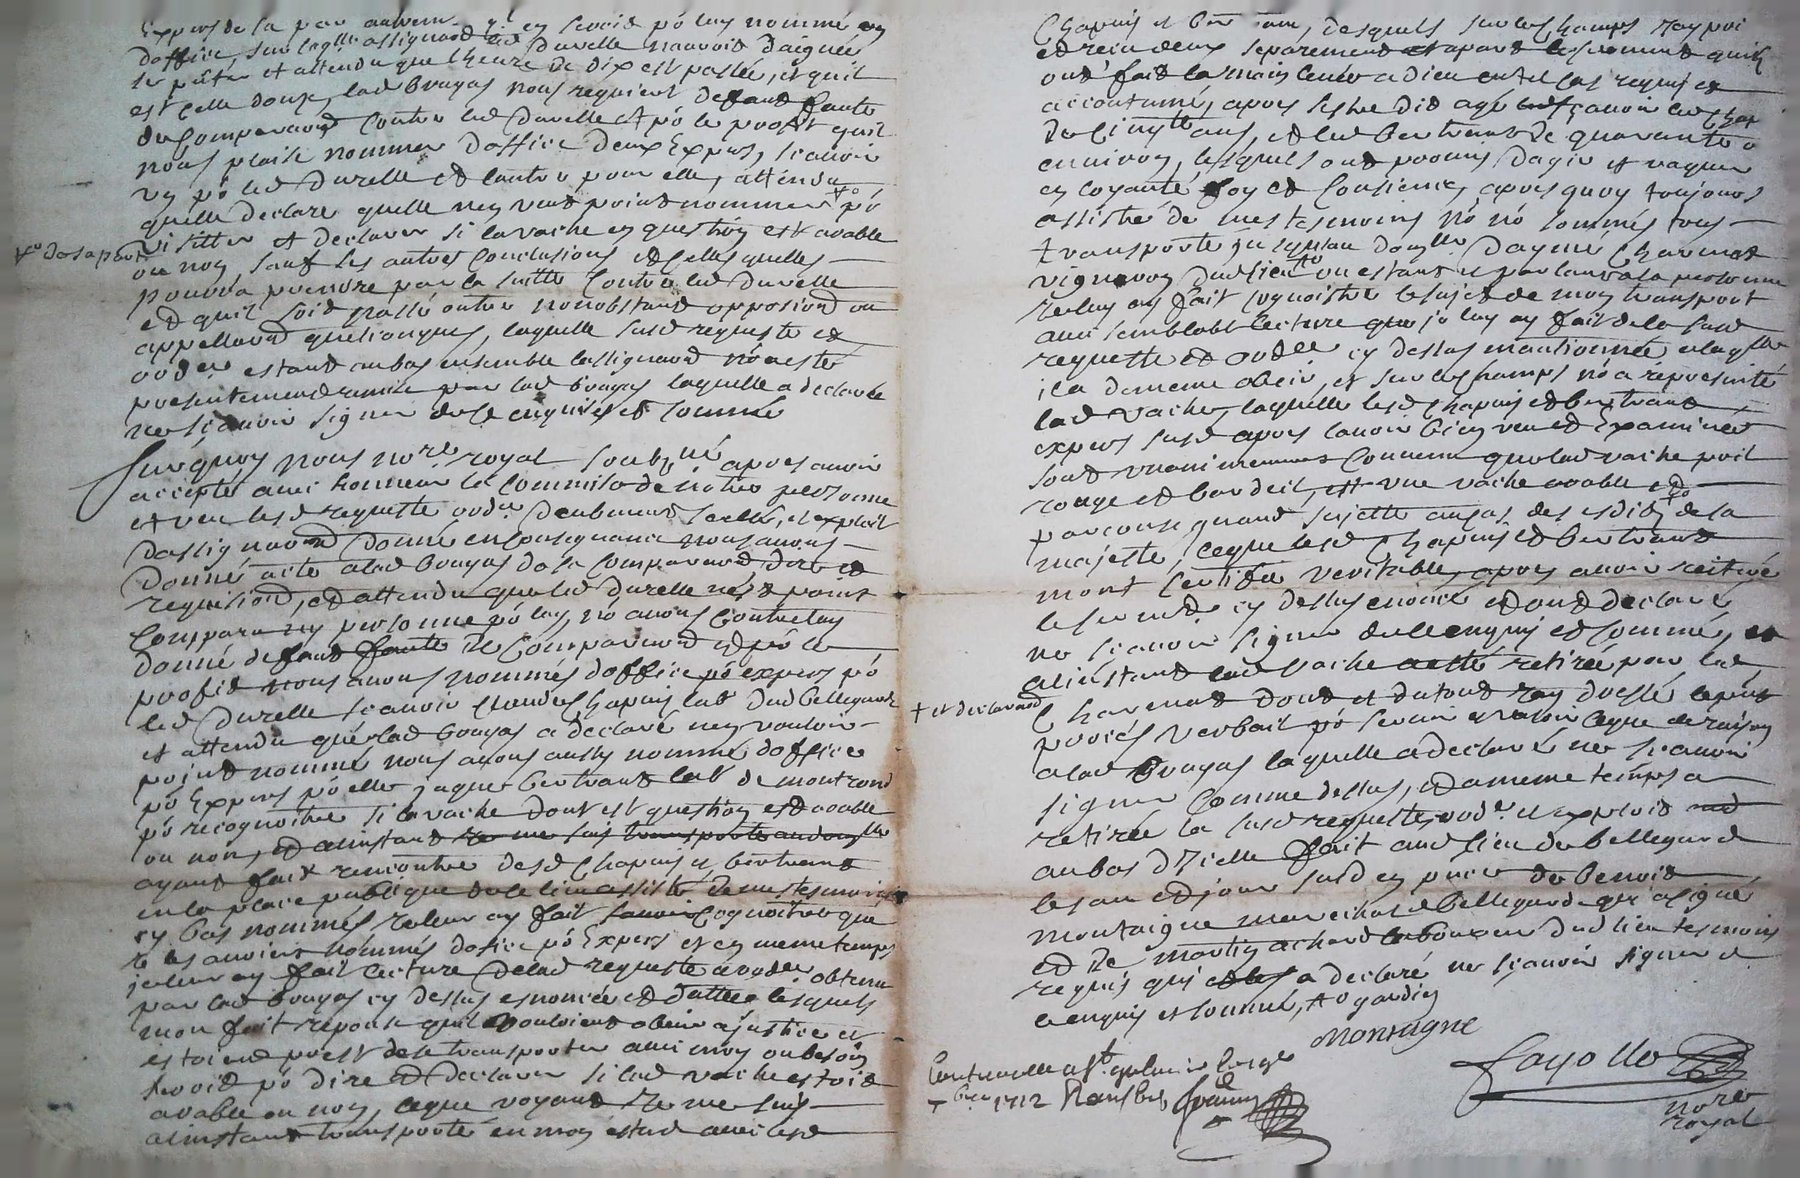 Expers de sa part autrem en seroit pô luy nommé en
doffice, sur laqlle assignaôn led durelle nauroit daigné
et attendu que lheure de dix est passée, et quil
est celle donze, lad bruyas nous requiert defaut faute
de comparaôn contre led durelle et pô le profit quil
nous plaise nommer doffice deux Expers, scavoir
un pô led durelle et lautre pour elle, attendu
quelle declare quelle nen veut point nommer pô
visitter et declarer si la vache en question est arable
ou non, sauf ses autres conclusions et celles quelles
pourra prendre par la suitte contre led durelle
et quil soit passé outre nonobstant opposiôn ou
appellaôn quelconques, laquelle susd requeste et
ordce estant au bas ensemble lassignaôn nô a esté
presentement remise par lad bruyas laquelle a declaré
ne scavoir signer de ce enquise et sommé
Surquoy nous nore royal soubzné apres avoir
accepté avec honneur la commission de notre personne
et veu lesd requeste ordce deubment scellé, et exploit
dassignaôn donné en consequance nous avons
donné acte a lad bruyas de sa comparaôn dire et
requisiôn, et attendu que led durelle nest point
comparu ny personne pô luy, nô avons contre luy
donné defaut faute de comparaôn et pô le
profit nous avons nommés doffice pô expers pô
led durelle scavoir claude chapuis labr dud bellegarde
et attendu que lad bruyas a declaré nen vouloir
point nommé nous avons aussy nommé doffice
pô Expers pô elle jaque bertrand labr de montrond
pô recognoitre si la vache dont est question est arable
ou non, et a linstant je me suis transporté au domlle
ayant fait rencontre desd chapuis et bertrand
en la place publique de ce lieu assisté de mes tesmoins
cy bas nommés je leur ay fait scavoir cognoitre que
je les aurois nommés doffice pô Expers et en meme temps
je leur ay fait lecture de lad requeste a ordce obtenu
par lad bruyas cy dessus enoncée et dattée lesquels
mon fait reponse quil vouloient obeir a justice et
estoient prest de se transporter avec moy ou besoin
seroit pô dire et declarer si lad vache estoit
arable ou non, ceque voyant je me suis
a linstant transporté en mon estude avec lesd
+o de sa part
chapuis et bertrand, desquels sur le champs jay pri
et receu deux separement et apart le serment quils
ont fait la main levée a dieu en tel cas requis et
accoutumé, apres sestre dit agé scavoir led chap
de cinqte ans, et led bertrand de quarante
environ, lesquels ont promis dagir et vaquer
en loyauté foy et consience, apres quoy toujours
assisté de mes tesmoins nô nô sommes tous
transporté jusquau domlle daymé charenat
vigneron dud lieu ou estant et parlant a sa personne
je luy ay fait cognoistre le sujet de mon transport
avec semblable lecture que je luy ay fait de la susd
requeste et ordce cy dessus mantionnée a laqlle
il a dememe obeir, et sur le champs nô a representé
lad vache, laquelle lesd chapuis et bertrand
expers susd apres lavoir bien veu et Examinée
sont unanimement convenu que lad vache poil
rouge et bardeil, est une vache arable et
par consequand sujette au cas des edits de sa
majesté, ceque lesd chapuis et bertrand
mont certifié veritable, apres avoir reiteré
le serment cy dessus enoncé et ont declaré
ne scavoir signer de ce enquis et sommés, et
a linstant lad vache a esté retirée par led
charenat dont et du tout jay dressé le pnt
procés verbail pô servir et valoir ceque de raison
a lad bruyas laquelle a declaré ne scavoir
signer comme dessus, et a meme temps a
retirée la susd requeste, ordce et exploit
au bas dicelle fait aud lieu de bellegarde
les an et jour susd en pnce de benoit
montaigne marechal a bellegarde qui a signé
et de martin achard laboureur dud lieu tesmoins
requis qui a declaré ne scavoir signer de
ce enquis et sommé,
+ et declaraôn
Montagne
Fayolle
nore
royal
Controollé a St galmier le
7bre 1712 R